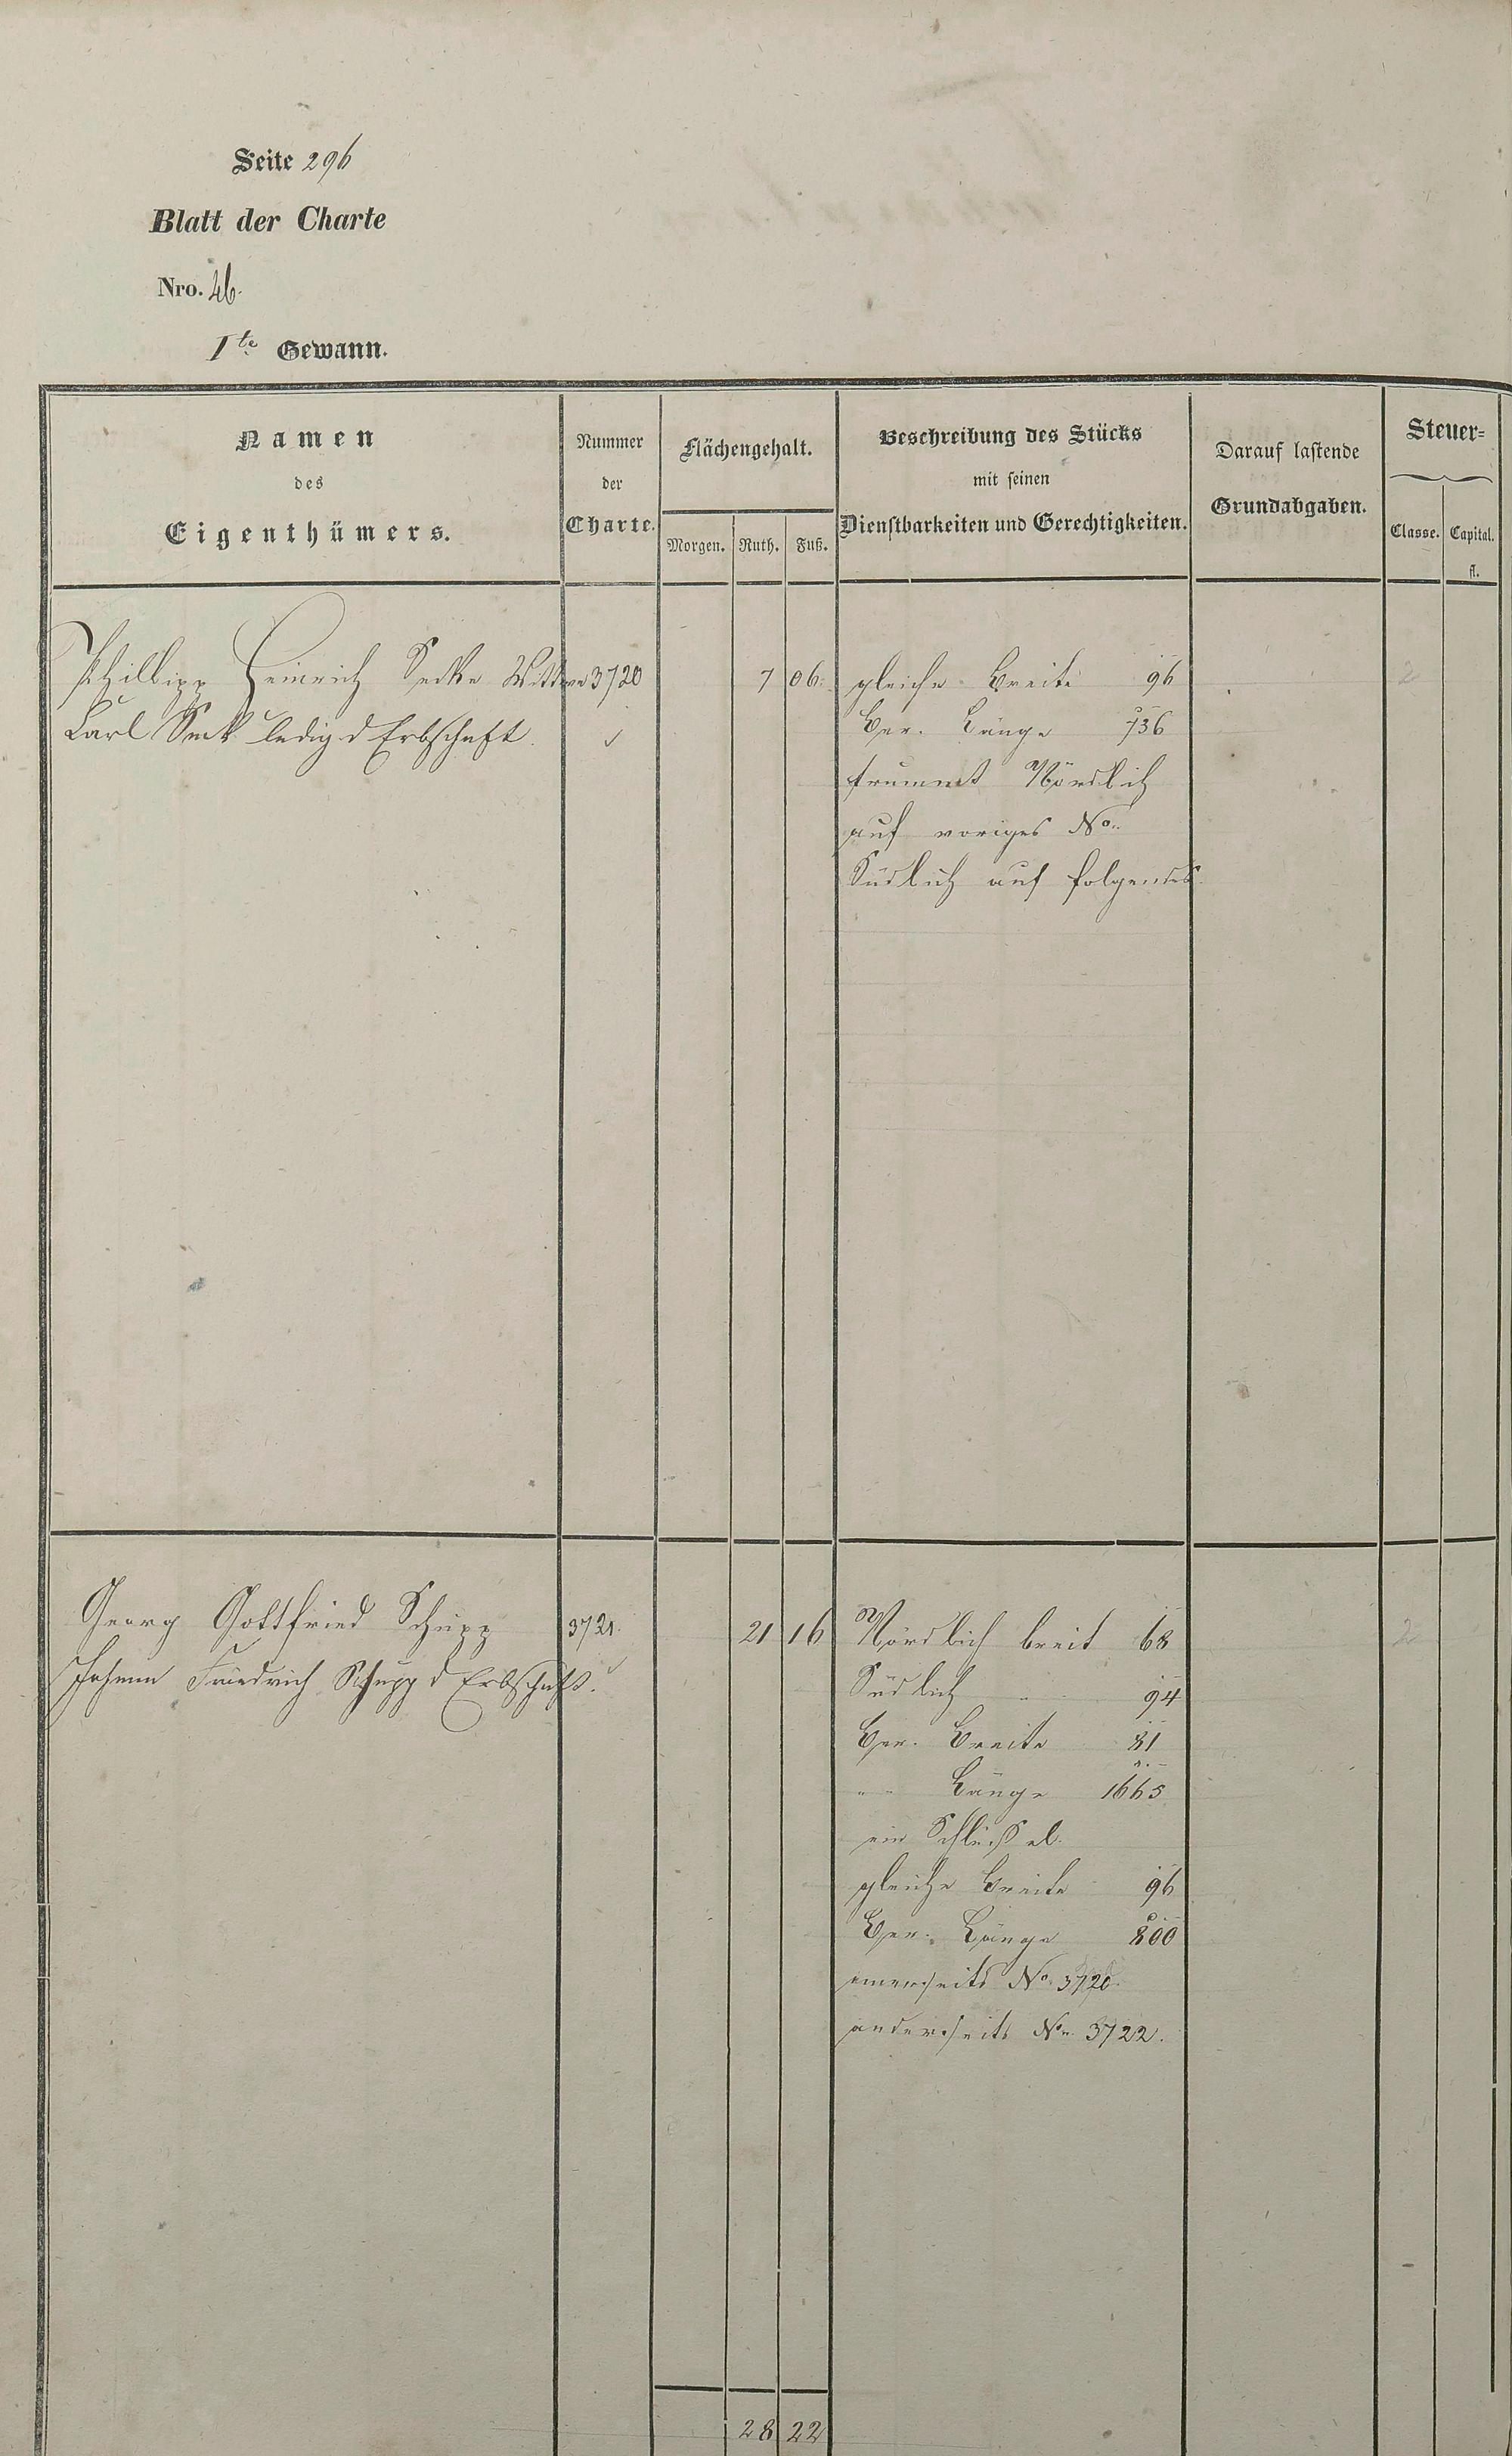 Seite 296
Blatt der Charte
Nro. 46.
Ite Gewann.
Namen
des
Eigenthümers.
Nummer
der
Charte.
Flächengehalt.
Morgen. Ruth. Fuß.
Beschreibung des Stücks
mit seinen
Dienstbarkeiten und Gerechtigkeiten.
Darauf lastende
Grundabgaben.
Steuer=
Classe. Capital.
fl.
Phillipp Heinrich Secks Wittwe 3720 7 06. gleiche Breite 96 2
Carl Seck ledig d Erbschaft. Ger. Länge 736
Nördlich
auf voriges No.
Südlich auf folgendes
Georg Gottfried Schupp 3721. 21 16 Nördlich breit 68 2
Johann Friedrich Schupp d Erbschaft. Südlich " 94
Ger. Breite 81
" Länge 1665
ein Schlüssel.
gleiche Breite 96
Ger. Länge 800
einerseits No. 3720.
anderseits No. 3722.
28 22